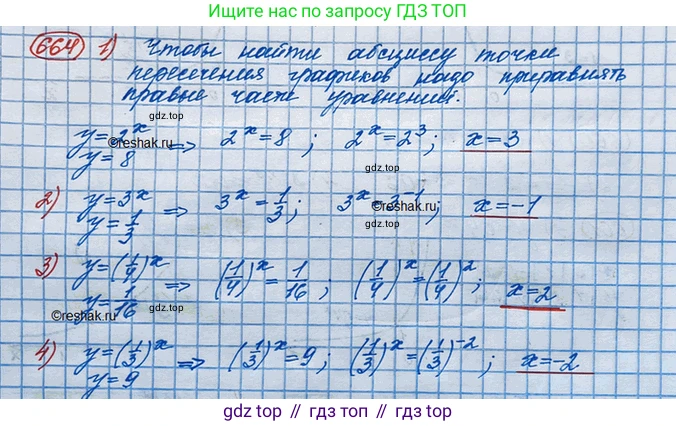 Ищите нас по запросу ГДЗ ТОП
664 1) Чтобы найти абсциссу точки
пересечения графиков надо приравнять
правые части уравнений.
gdz.top
y=2^x
©reshak.ru
y=8 => 2^x=8; 2^x=2^3; x=3
gdz.top
2) y=3^x
y=1/3 => 3^x=1/3; 3^x=3^-1; x=-1
©reshak.ru
3) y=(1/4)^x
y=1/16 => (1/4)^x=1/16; (1/4)^x=(1/4)^2; x=2
©reshak.ru
gdz.top
4) y=(1/3)^x
y=9 => (1/3)^x=9; (1/3)^x=(1/3)^-2; x=-2
gdz top // гдз топ // gdz.top // гдз.топ